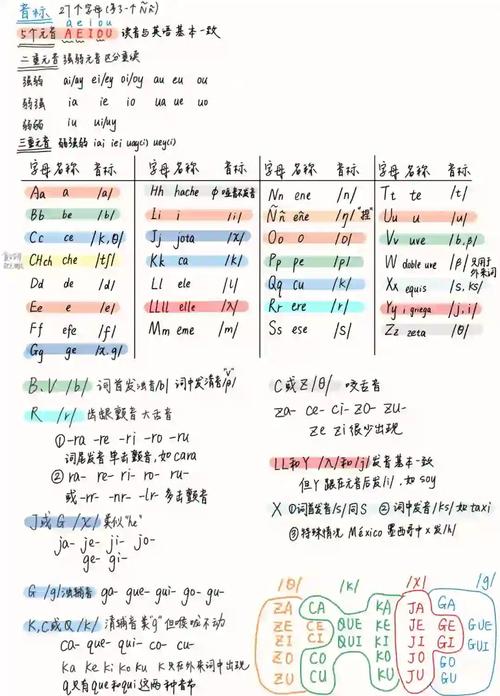 音标 27个字母(多了一个Ññ)
a e i o u
5个元音 A E I O U 读音与英语基本一致
二重元音 强弱元音区分重读
强弱 ai/ay ei/ey oi/oy au eu ou
弱强 ia ie io ua ue uo
弱弱 iu ui/uy
三重元音 弱强弱 iai iei uay(i) uey(i)
字母 名称 音标
Aa a /a/
Bb be /b/
Cc ce /k,θ/
CHch che /tʃ/
Dd de /d/
Ee e /e/
Ff efe /f/
Gg ge /x,g/
字母 名称 音标
Hh hache ф哑音不发音
Ii i /i/
Jj jota /x/
Kk ca /k/
Ll ele /l/
LLll elle /λ/
Mm eme /m/
字母 名称 音标
Nn ene /n/
Ññ eñe /ŋ/ "捏"
Oo o /o/
Pp pe /p/
Qq cu /k/
Rr ere /r/
Ss ese /s/
字母 名称 音标
Tt te /t/
Uu u /u/
Vv uve /b,β/
W doble uve /β/ 只用于外来词
Xx equis /s,ks/
Yy i griega /j,i/
Zz zeta /θ/
B、V /b/ 词首发浊音/b/ 词中发清音"v"/β/
R /r/ 齿龈颤音 大舌音
①-ra -re -ri -ro -ru
词尾发音 单击颤音,如cara
② ra- re- ri- ro- ru-
或-rr- -nr- -lr- 多击颤音
J或G /x/ 类似"he"
ja- je- ji- jo-
ge- gi-
G /g/ ga- gue- gui- go- gu-
K、C或Q /k/ 清辅音 类"g"但喉咙不动
ca- que- qui- co- cu-
ka ke ki ko ku K只在外来词中出现
q只有que和qui这两种音节
C或Z /θ/ 咬舌音
za- ce- ci- zo- zu-
ze zi 很少出现
LL和Y /λ/和/j/发音基本一致
但Y跟在元音后发/i/,如soy
X ①词首发/s/同S ②词中发音/ks/如taxi
③特殊情况 México 墨西哥中x发/h/
/θ/ /k/ /x/ /g/
ZA CA KA JA GA
ZE CE QUE KE JE GE GUE
ZI CI QUI KI JI GI GUI
ZO CO KO JO GO
ZU CU KU JU GU